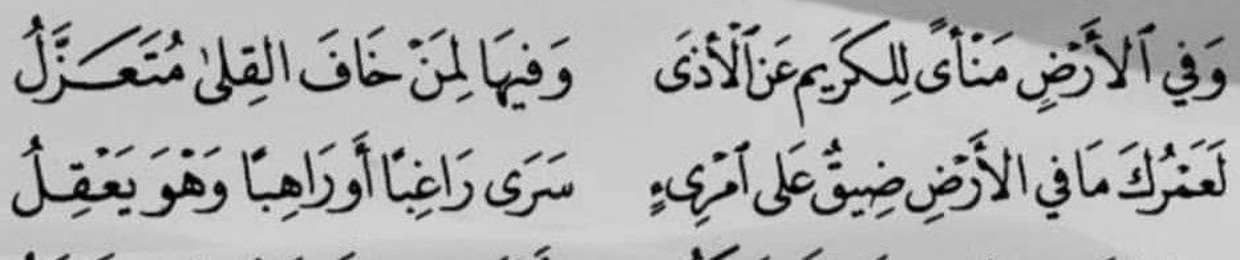 وَفي ٱلأَرْضِ مَنْأىً لِلكَرَيمِ عَنِ ٱلْأَذَى وَفيهَا لِمَنْ خَافَ القِلىٰ مُتَعَزَّلُ
لَعَمْرُكَ مَا في الأَرْضِ ضِيقٌ عَلى ٱمْرِىءٍ سَرَى رَاغِبًا أَو رَاهِبًا وَهْوَ يَعْقِلُ